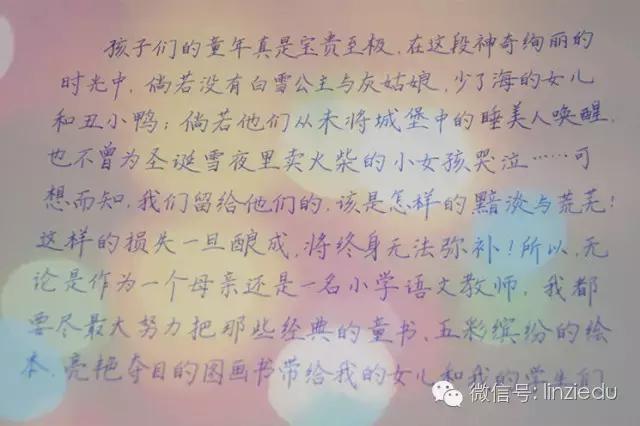 孩子们的童年真是宝贵至极,在这段神奇绚丽的
时光中,倘若没有白雪公主与灰姑娘,少了海的女儿
和丑小鸭;倘若他们从未将城堡中的睡美人唤醒,
也不曾为圣诞雪夜里卖火柴的小女孩哭泣……可
想而知,我们留给他们的,该是怎样的黯淡与荒芜!
这样的损失一旦酿成,将终身无法弥补!所以,无
论是作为一个母亲还是一名小学语文教师,我都
要尽最大努力把那些经典的童书、五彩缤纷的绘
本、亮艳夺目的图画书带给我的女儿和我的学生们
微信号: linziedu